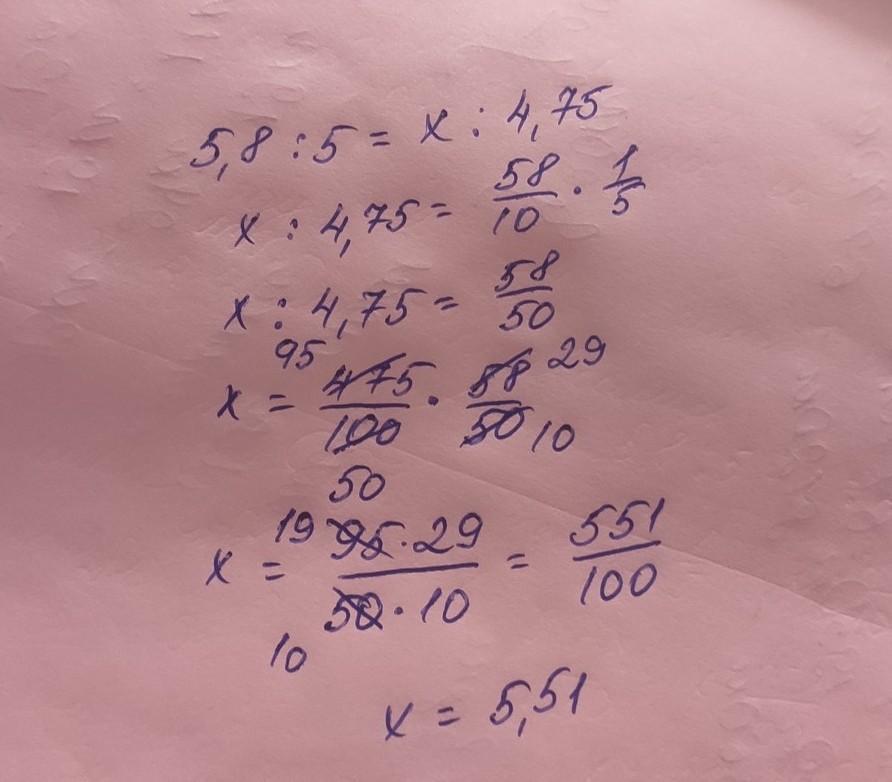 5,8 : 5 = x : 4,75
x : 4,75 = 58/10 · 1/5
x : 4,75 = 58/50
95 29
x = 475/100 · 58/50 10
50
x = 19 95·29/50·10 = 551/100
10
x = 5,51